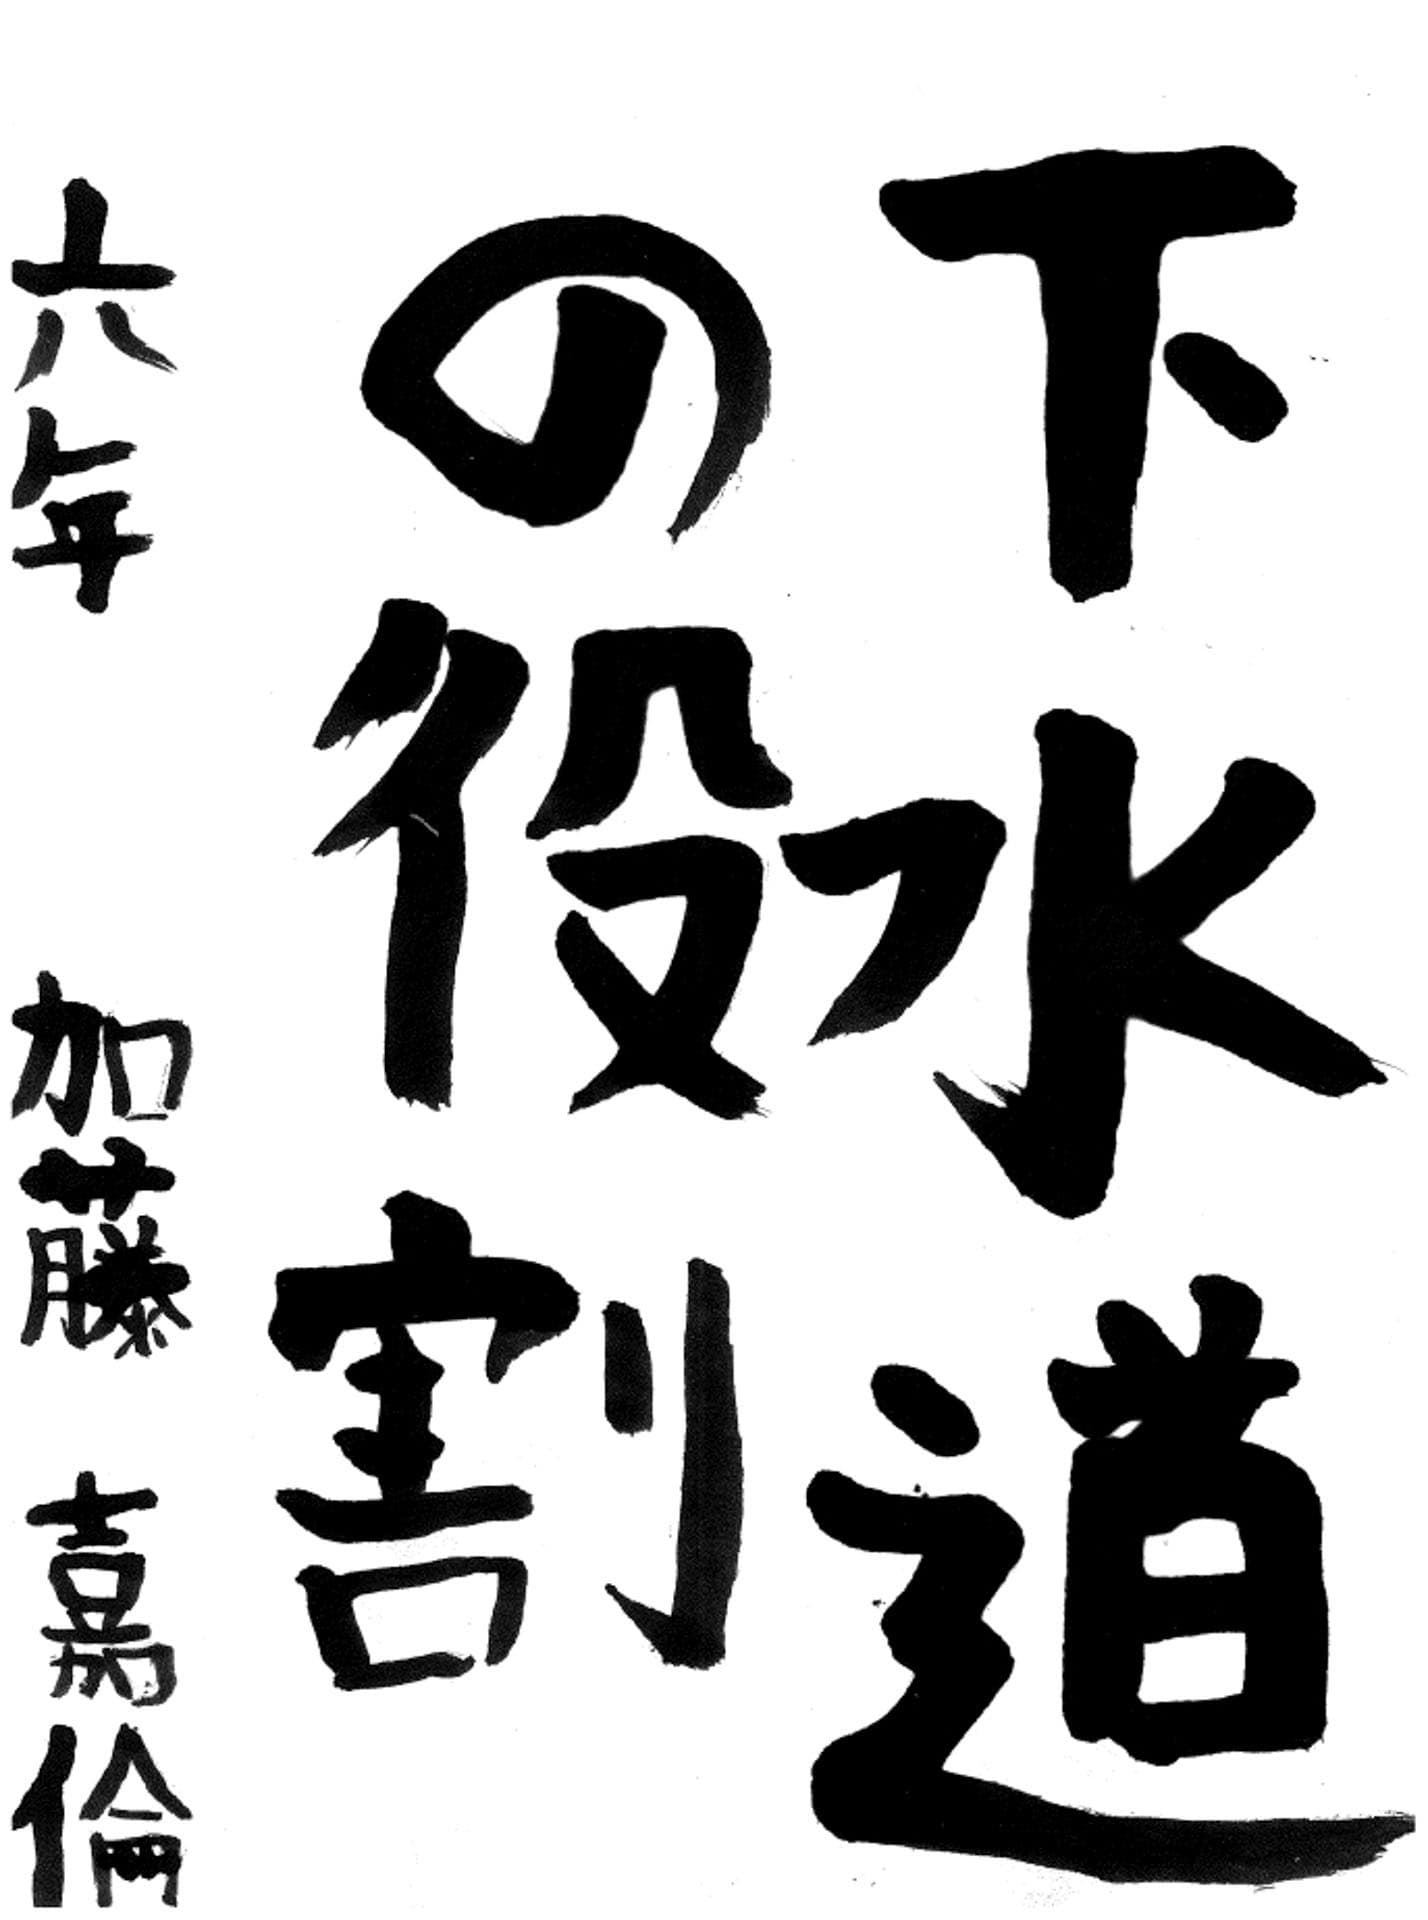 下水道
の役割
六年 加藤 嘉倫